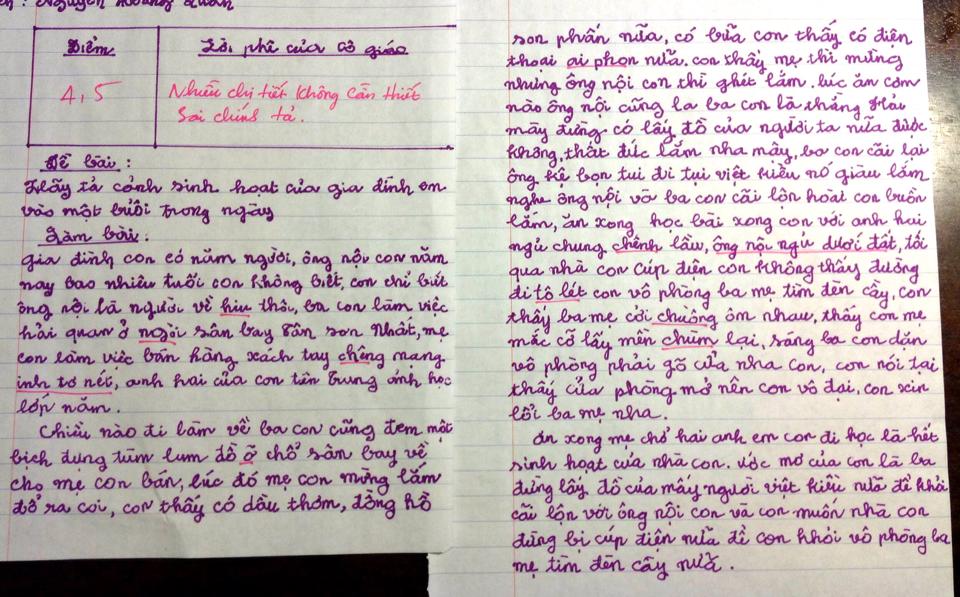 Nguyễn Hoàng Quân
Điểm
Lời phê của cô giáo
4,5
Nhiều chi tiết không cần thiết
Sai chính tả.
Đề bài :
Hãy tả cảnh sinh hoạt của gia đình em
vào một buổi trong ngày
Làm bài :
gia đình con có năm người, ông nội con năm
nay bao nhiêu tuổi con không biết, con chỉ biết
ông nội là người về hiu thôi, ba con làm việc
hải quan ở ngòi sân bay Tân Sơn Nhất, mẹ
con làm việc bán hàng xách tay chêng mạng
inh tơ nét, anh hai của con tên Trung ảnh học
lớp năm.
Chiều nào đi làm về ba con cũng đem một
bịch đựng tùm lum đồ ỡ chổ sân bay về
cho mẹ con bán, lúc đó mẹ con mừng lắm
đổ ra coi, con thấy có dầu thơm, đồng hồ
son phấn nữa, có bữa con thấy có điện
thoại ai phon nữa, con thấy mẹ thì mừng
nhưng ông nội con thì ghét lắm. lúc ăn cơm
nào ông nội cũng la ba con là thằng Hải
mày đừng có lấy đồ của người ta nữa được
không, thất đức lắm nha mầy, ba con cãi lại
ông kệ bọn tui đi tụi việt kiều nó giàu lắm
nghe ông nội và ba con cãi lộn hoài con buồn
lắm, ăn xong học bài xong con với anh hai
ngủ chung chênh lầu, ông nội ngủ dưới đất, tối
qua nhà con cúp điện con không thấy đường
đi tô lét con vô phòng ba mẹ tìm đèn cầy, con
thấy ba mẹ cởi chuông ôm nhau, thấy con mẹ
mắc cỡ lấy mền chùm lại, sáng ba con dặn
vô phòng phải gõ cửa nha con, con nói tại
thấy cửa phòng mở nên con vô đại, con xin
lỗi ba mẹ nha.
Ăn xong mẹ chở hai anh em con đi học là hết
sinh hoạt của nhà con. Ước mơ của con là ba
đừng lấy đồ của mấy người việt kiều nữa để khỏi
cãi lộn với ông nội con và con muốn nhà con
đừng bị cúp điện nữa để con khỏi vô phòng ba
mẹ tìm đèn cầy nữa.